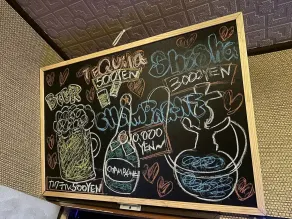 TEQUILA
500YEN
Shisha
3000YEN
BEER
CHAMPAGNE
0'000
YEN~
CHAMPAGNE
500YEN